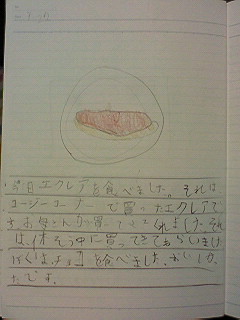 今日エクレアを食べました。それは
コージーコーナーで買ったエクレアで
すお母さんが買ってきてくれました。それ
は、体そう中に買ってきてもらいました
ぼくは
を食べました。おいしかっ
たです。